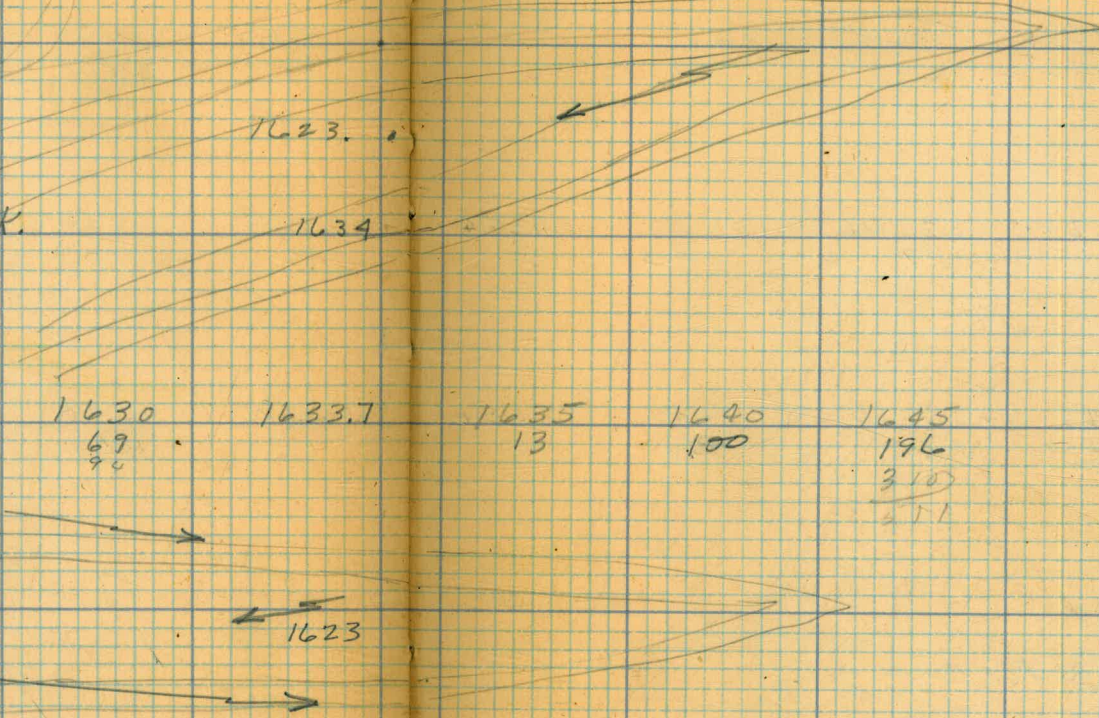 1623.
K.
1634
1630 1633.7 1635 1640 1645
69 13 100 196
1623